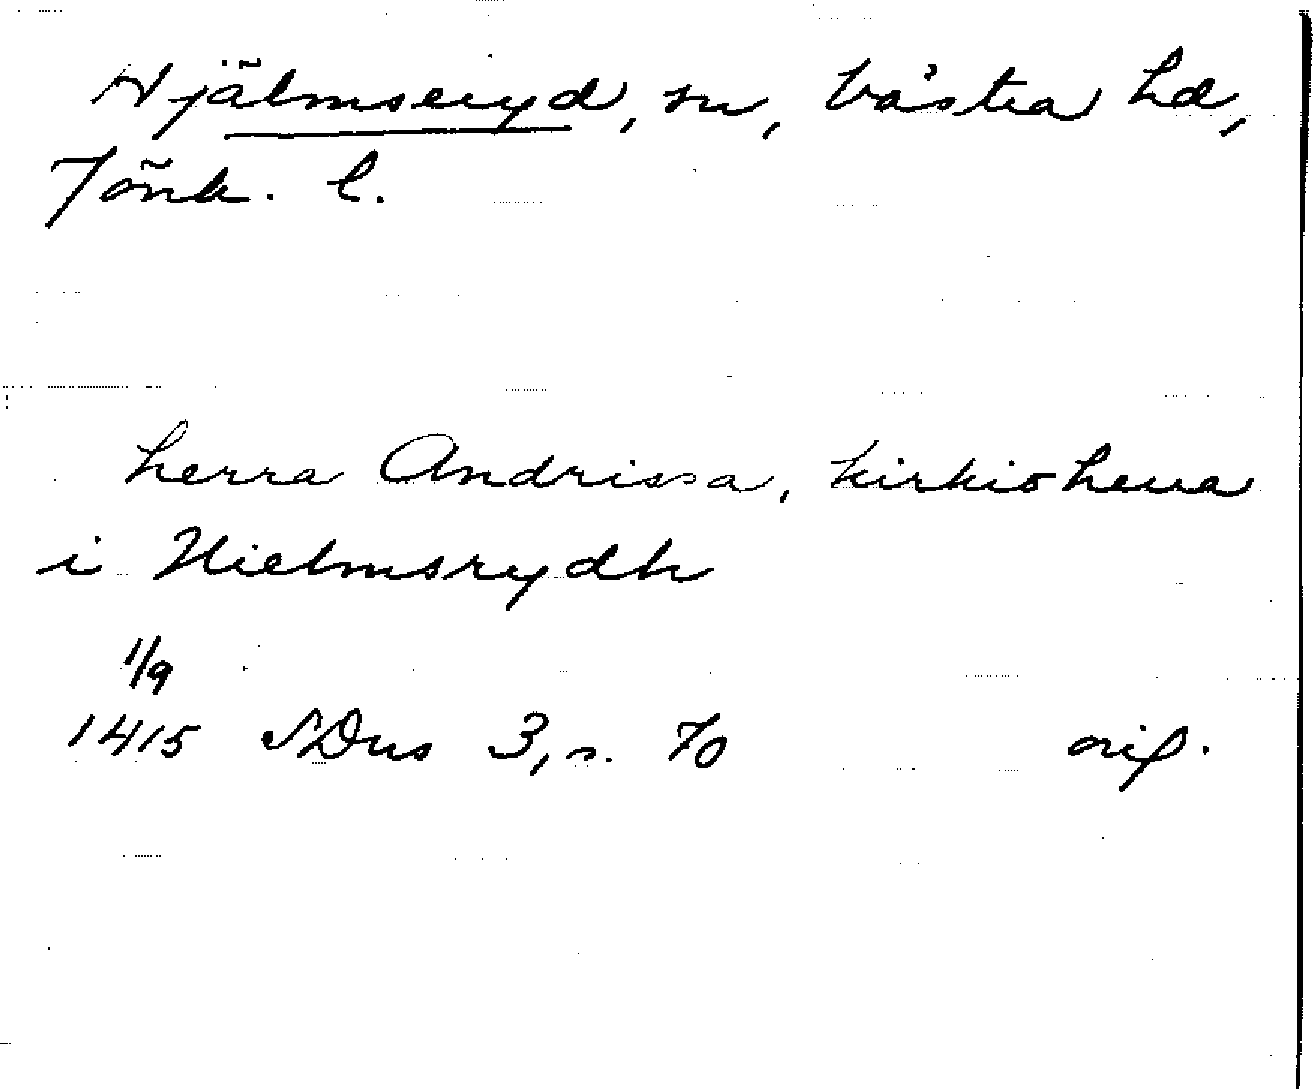 Hjälmseryd, sn, Västra hd,
Jönk. l.
herra Andrissa, kirkioherra
i Hielmsrydh
1/9
1415 SDns 3, s. 70 orig.